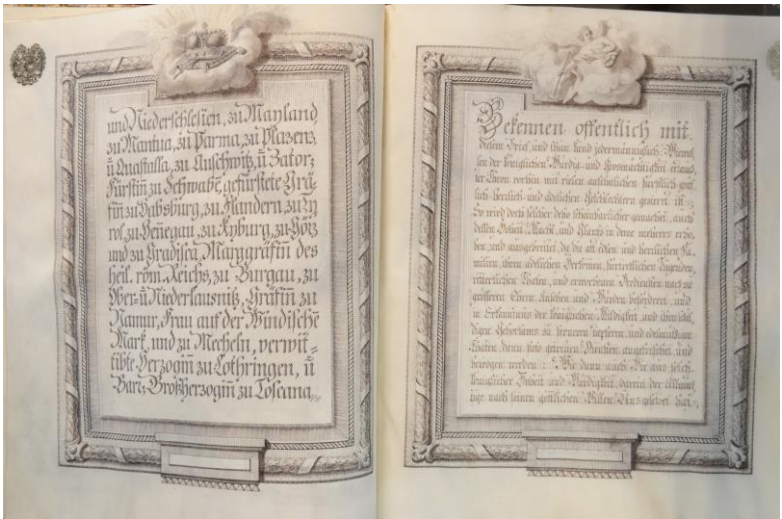 und Niederschlesien, zu Mayland,
zu Mantua, zu Parma, zu Plazenz,
ū Quastalla, zu Auschwitz, ū Zator;
Fürstin zu Schwabē, gefürstete Grä-
fin zu Habsburg, zu Flandern, zu Ty
rol, zu Henegau, zu Kyburg, zu Görz
und zu Gradisca, Marggräfin des
heil. röm. Reichs, zu Burgau, zu
Ober- ū Niederlausnitz, Gräfin zu
Namur, Frau auf der Windischē
Mark, und zu Mecheln, verwit=
tibte Herzogin zu Lothringen, ū
Barr, Großherzogin zu Toscana
Bekennen offentlich mit
diesem Brief, und thun kund jedermänniglich: Wiewol
in der königlichen Würdig- und Grosmächtigkeit
ter Thron vorhin mit vielen ansehnlichen
lich- herrlich- und adelichen Geschlechtern gezieret ist.
So wird doch solcher desto schaubarlicher gemachet, auch
dessen Hoheit, Macht, und Glantz in deme mehrers erho-
ben, und ausgebreitet, da die alt-edlen und herrlichen Fa-
milien, ihren adelichen Herkommen, Tugenden,
ritterlichen Thaten, und erworbene Verdiensten nach zu
größeren Ehren, Ansehen und Würden befördert, und
in Erkanntnus der königlichen Mildigkeit und
digen Gehorsams zu ferneren tapferen, und edelmüthigen
thaten, dann stets getreuen Diensten angefrischet, und
bewogen werden: Wie dann auch Wir aus
königlicher Hoheit und Würdigkeit, darein der Allmäch-
tige nach seinen göttlichen Willen Uns gesetzet hat-